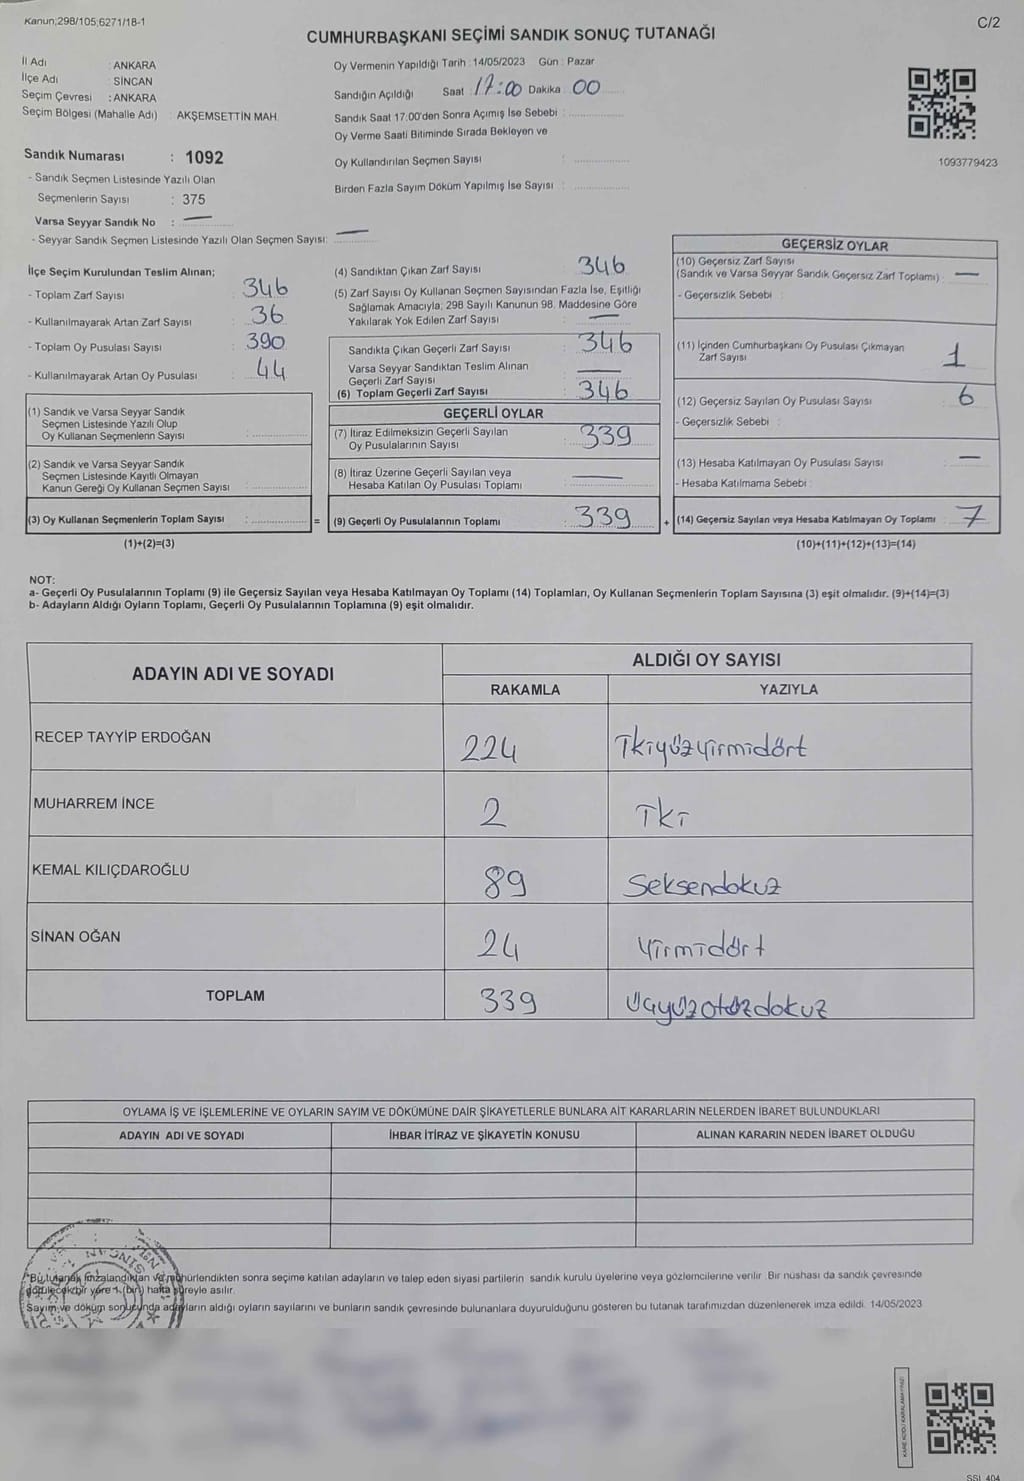 Kanun;298/105;6271/18-1
C/2
CUMHURBAŞKANI SEÇİMİ SANDIK SONUÇ TUTANAĞI
İl Adı : ANKARA
İlçe Adı : SİNCAN
Seçim Çevresi : ANKARA
Seçim Bölgesi (Mahalle Adı) : AKŞEMSETTİN MAH.
Sandık Numarası : 1092
- Sandık Seçmen Listesinde Yazılı Olan
Seçmenlerin Sayısı : 375
Varsa Seyyar Sandık No : —
- Seyyar Sandık Seçmen Listesinde Yazılı Olan Seçmen Sayısı: —
Oy Vermenin Yapıldığı Tarih : 14/05/2023 Gün : Pazar
Sandığın Açıldığı Saat 17:00 Dakika 00
Sandık Saat 17.00'den Sonra Açımış İse Sebebi :
Oy Verme Saati Bitiminde Sırada Bekleyen ve
Oy Kullandırılan Seçmen Sayısı :
Birden Fazla Sayım Döküm Yapılmış İse Sayısı :
1093779423
İlçe Seçim Kurulundan Teslim Alınan;
- Toplam Zarf Sayısı : 346
- Kullanılmayarak Artan Zarf Sayısı : 36
- Toplam Oy Pusulası Sayısı : 390
- Kullanılmayarak Artan Oy Pusulası : 44
(1) Sandık ve Varsa Seyyar Sandık
Seçmen Listesinde Yazılı Olup
Oy Kullanan Seçmenlerin Sayısı :
(2) Sandık ve Varsa Seyyar Sandık
Seçmen Listesinde Kayıtlı Olmayan
Kanun Gereği Oy Kullanan Seçmen Sayısı :
(3) Oy Kullanan Seçmenlerin Toplam Sayısı : =
(1)+(2)=(3)
(4) Sandıktan Çıkan Zarf Sayısı : 346
(5) Zarf Sayısı Oy Kullanan Seçmen Sayısından Fazla İse, Eşitliği
Sağlamak Amacıyla; 298 Sayılı Kanunun 98. Maddesine Göre
Yakılarak Yok Edilen Zarf Sayısı : —
Sandıkta Çıkan Geçerli Zarf Sayısı : 346
Varsa Seyyar Sandıktan Teslim Alınan
Geçerli Zarf Sayısı : —
(6) Toplam Geçerli Zarf Sayısı : 346
GEÇERLİ OYLAR
(7) İtiraz Edilmeksizin Geçerli Sayılan
Oy Pusulalarının Sayısı : 339
(8) İtiraz Üzerine Geçerli Sayılan veya
Hesaba Katılan Oy Pusulası Toplamı : —
(9) Geçerli Oy Pusulalarının Toplamı : 339 +
GEÇERSİZ OYLAR
(10) Geçersiz Zarf Sayısı
(Sandık ve Varsa Seyyar Sandık Geçersiz Zarf Toplamı) : —
- Geçersizlik Sebebi :
(11) İçinden Cumhurbaşkanı Oy Pusulası Çıkmayan
Zarf Sayısı 1
(12) Geçersiz Sayılan Oy Pusulası Sayısı : 6
- Geçersizlik Sebebi :
(13) Hesaba Katılmayan Oy Pusulası Sayısı : —
- Hesaba Katılmama Sebebi :
(14) Geçersiz Sayılan veya Hesaba Katılmayan Oy Toplamı : 7
(10)+(11)+(12)+(13)=(14)
NOT:
a- Geçerli Oy Pusulalarının Toplamı (9) ile Geçersiz Sayılan veya Hesaba Katılmayan Oy Toplamı (14) Toplamları, Oy Kullanan Seçmenlerin Toplam Sayısına (3) eşit olmalıdır. (9)+(14)=(3)
b- Adayların Aldığı Oyların Toplamı, Geçerli Oy Pusulalarının Toplamına (9) eşit olmalıdır.
ADAYIN ADI VE SOYADI
ALDIĞI OY SAYISI
RAKAMLA YAZIYLA
RECEP TAYYİP ERDOĞAN 224 İkiyüzyirmidört
MUHARREM İNCE 2 İki
KEMAL KILIÇDAROĞLU 89 Seksendokuz
SİNAN OĞAN 24 Yirmidört
TOPLAM 339 Üçyüzotuzdokuz
OYLAMA İŞ VE İŞLEMLERİNE VE OYLARIN SAYIM VE DÖKÜMÜNE DAİR ŞİKAYETLERLE BUNLARA AİT KARARLARIN NELERDEN İBARET BULUNDUKLARI
ADAYIN ADI VE SOYADI İHBAR İTİRAZ VE ŞİKAYETİN KONUSU ALINAN KARARIN NEDEN İBARET OLDUĞU
"Bu tutanak imzalandıktan ve mühürlendikten sonra seçime katılan adayların ve talep eden siyasi partilerin sandık kurulu üyelerine veya gözlemcilerine verilir. Bir nüshası da sandık çevresinde
görülecek bir yere 1 (bir) hafta süreyle asılır.
Sayım ve döküm sonucunda adayların aldığı oyların sayılarını ve bunların sandık çevresinde bulunanlara duyurulduğunu gösteren bu tutanak tarafımızdan düzenlenerek imza edildi. 14/05/2023
KARE KODU KARALAMAYINIZ!
SSL 404